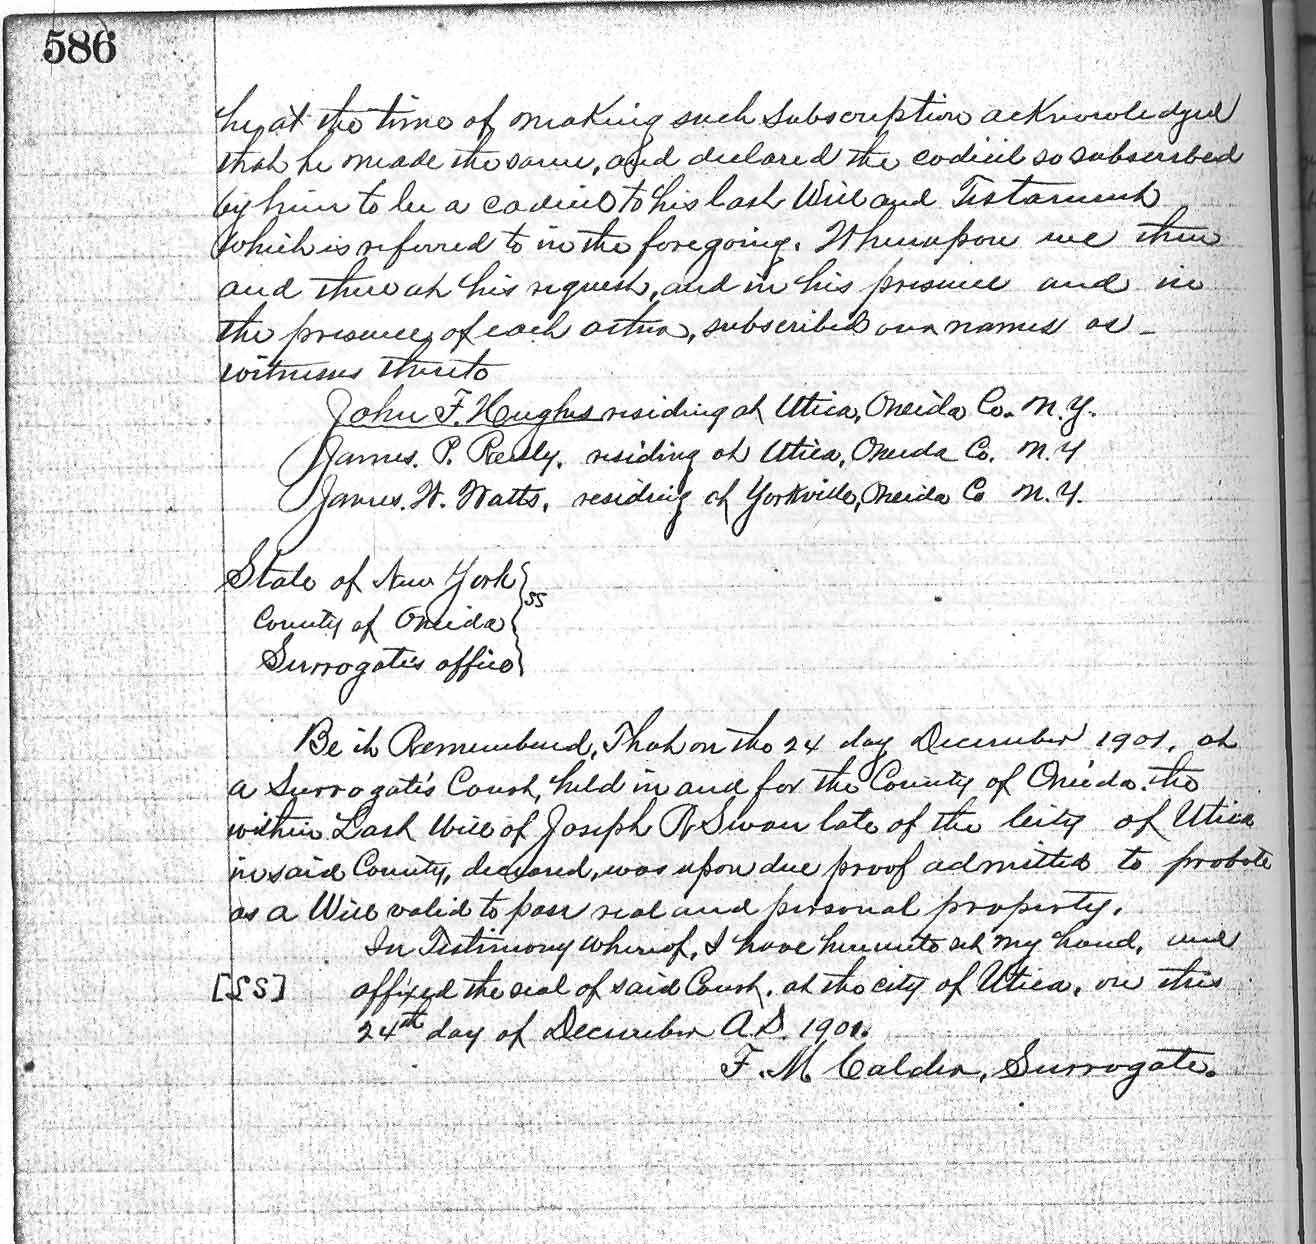 586
he, at the time of making such subscription acknowledged
that he made the same, and declared the codicil so subscribed
by him to be a codicil to his last Will and Testament
which is referred to in the foregoing. Whereupon we then
and there at his request, and in his presence and in
the presence of each other, subscribed our names as -
witnesses thereto
John F. Hughes residing at Utica, Oneida Co. N.Y.
James. P. Reilly. residing at Utica, Oneida Co. N.Y
James. W. Watts, residing at Yorkville, Oneida Co N.Y.
State of New York
SS
County of Oneida
Surrogate's office
Be it Remembered, That on the 24 day December 1901, at
a Surrogate's Court, held in and for the County of Oneida. the
within Last Will of Joseph R Swan late of the City of Utica
in said County, deceased, was upon due proof admitted to probate
as a Will valid to pass real and personal property.
In Testimony whereof, I have hereunto set my hand, and
[SS] affixed the seal of said Court, at the city of Utica, on this
24th day of December A.D. 1901.
F. M. Calder, Surrogate.